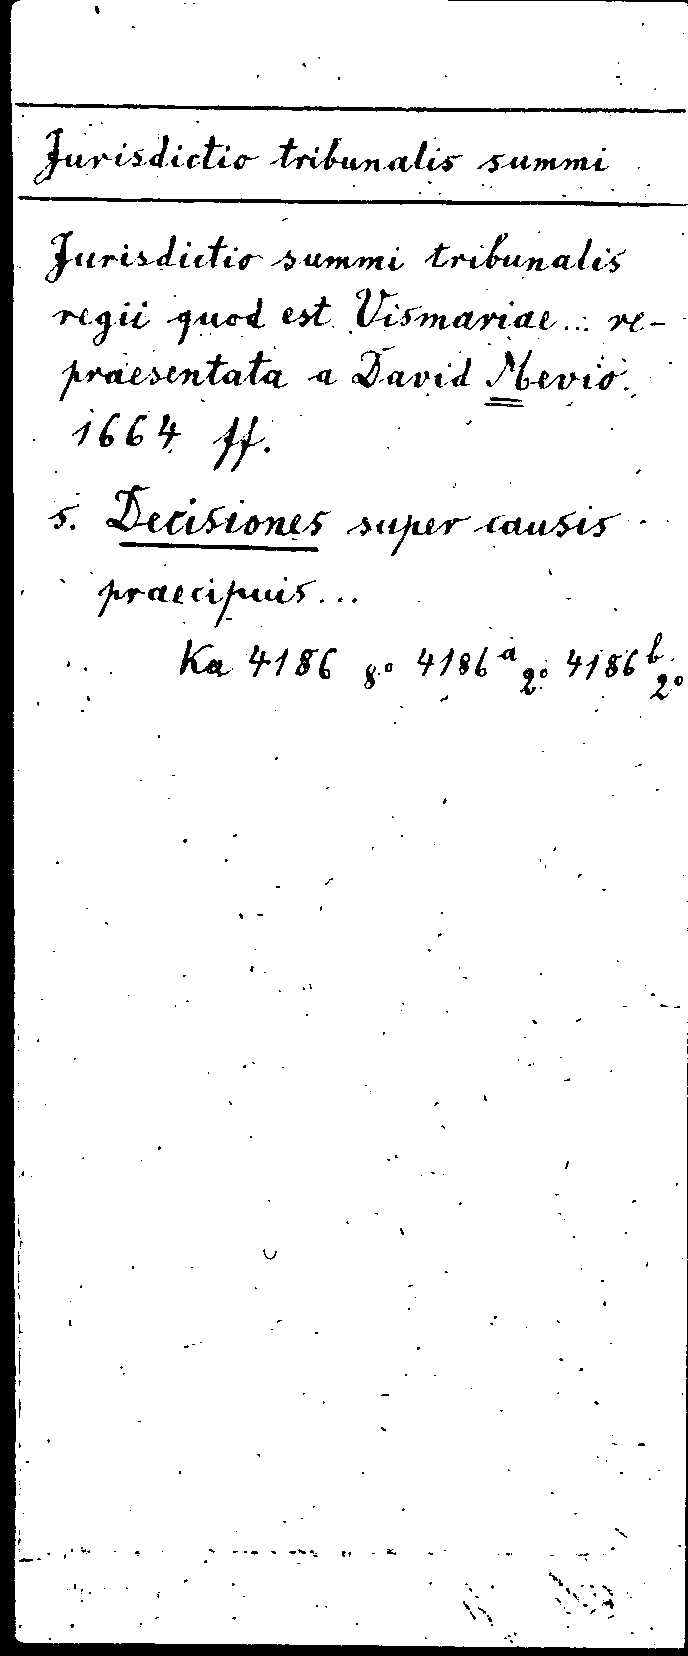 Jurisdictio tribunalis summi
Jurisdictio summi tribunalis
regii quod est Vismariae... re-
praesentata a David Mevio.
1664 ff.
s. Decisiones super causis
praecipuis...
Ka 4186 8° 4186 a 2° 4186 b 2°